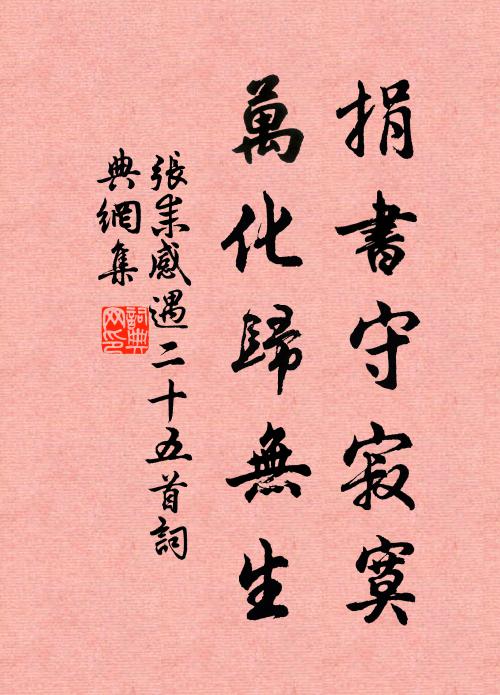 捐書守寂寞
萬化歸無生
張耒感遇二十五首詞
典網集
詞典
网印